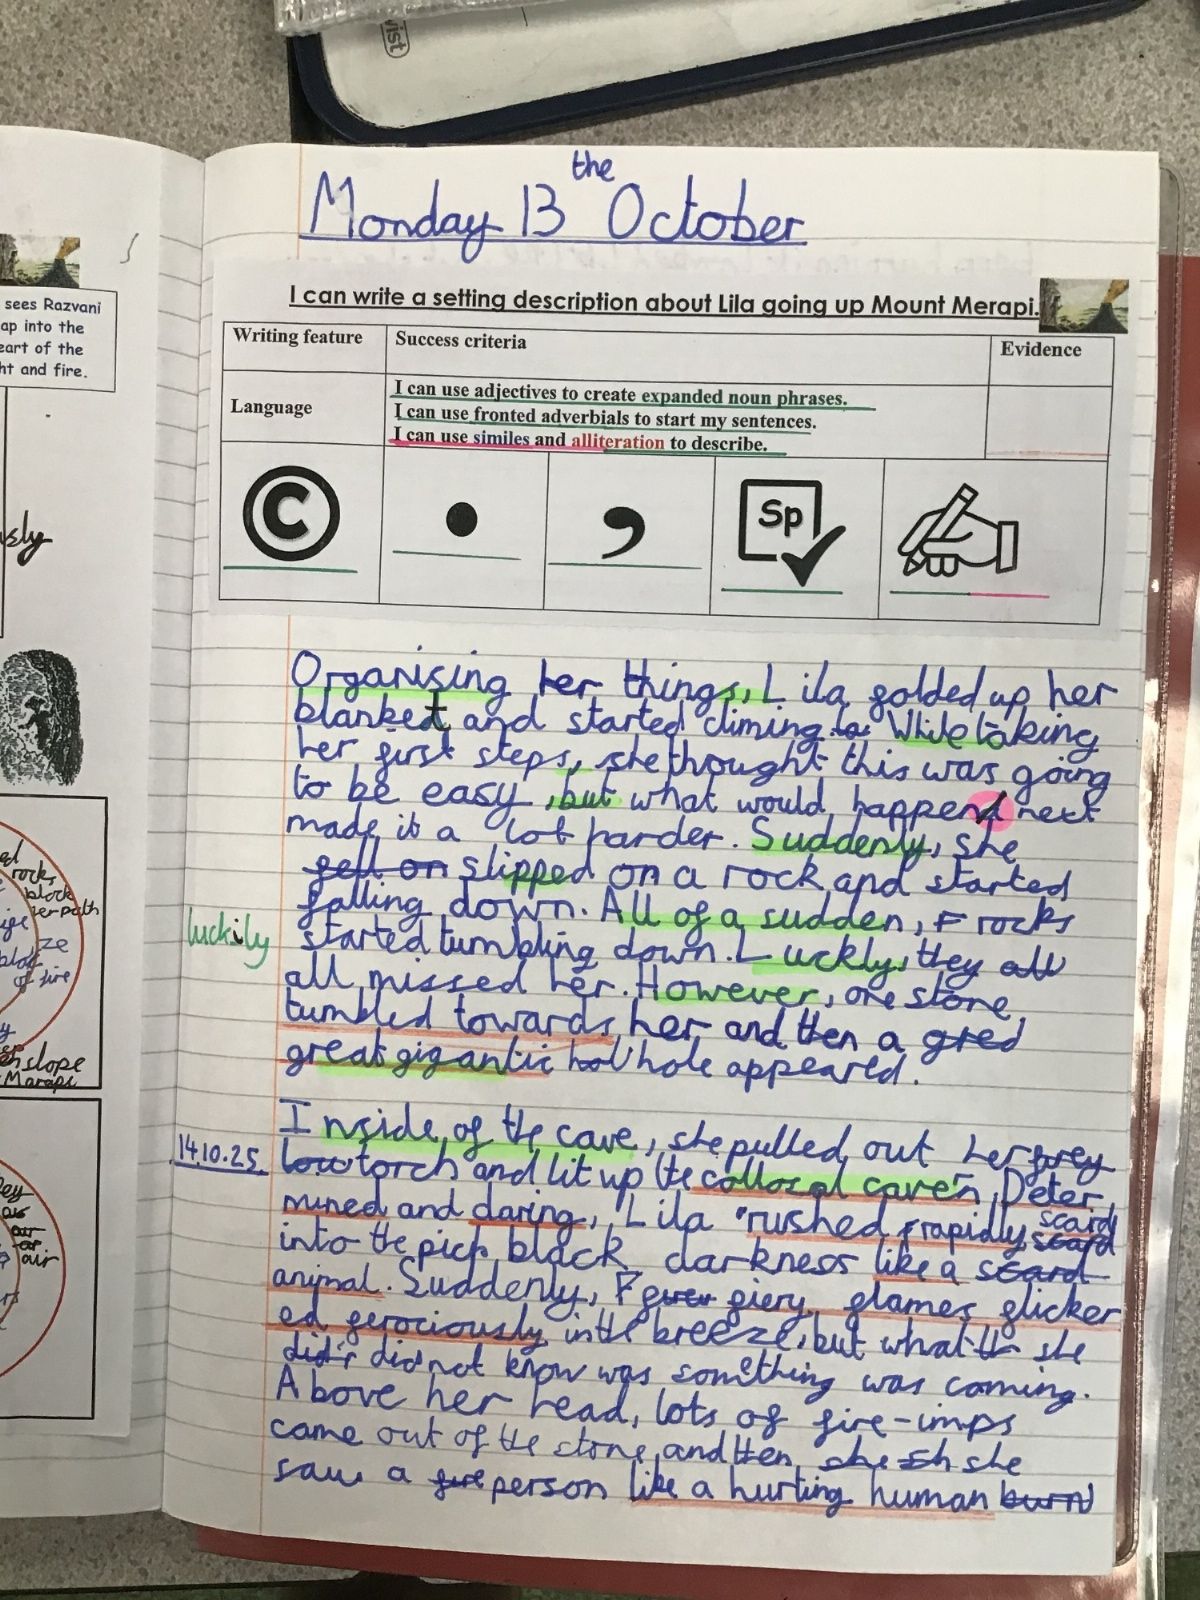 vist
sees Razvani
ap into the
eart of the
ht and fire.
usly
rocks
block
her path
of fire
slope
Merapi
air
the
Monday 13 October
I can write a setting description about Lila going up Mount Merapi.
Writing feature Success criteria Evidence
Language
I can use adjectives to create expanded noun phrases.
I can use fronted adverbials to start my sentences.
I can use similes and alliteration to describe.
C . , Sp
Organising her things, Lila folded up her
blanket and started climing to. While taking
her first steps, she thought this was going
to be easy, but what would happen next
made it a lot harder. Suddenly, she
fell on slipped on a rock and started
falling down. All of a sudden, F rocks
luckily
started tumbling down. Luckly, they all
all missed her. However, one stone
tumbled towards her and then a gred
great gigantic hol hole appeared.
Inside of the cave, she pulled out her frey
14.10.25
low torch and lit up the collosal cavern. Deter
mined and daring, Lila rushed rapidly scard
into the pich black darkness like a scard
animal. Suddenly, F fiery flames flicker
ed ferociously in the breeze, but what th she
did't did not know was something was coming.
Above her head, lots of fire-imps
came out of the stone and then she sh she
saw a fire person like a hurting human burnd